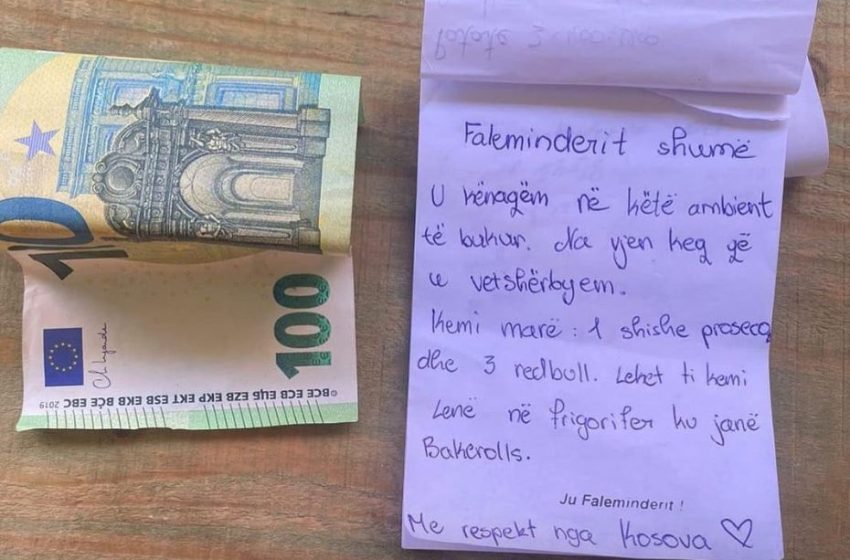 100
BCE ECB ЕЦБ EZB EKP EKT ESB EKB BĊE EBC
©
2019
Faleminderit shumë
U kënaqëm në këtë ambient
të bukur. Na vjen keq që
u vetshërbyem.
Kemi marë: 1 shishe prosecq
dhe 3 redbull. Lehet ti kemi
Lenë në frigorifer ku janë
Bakerolls.
Ju Faleminderit !
Me respekt nga Kosova ♡